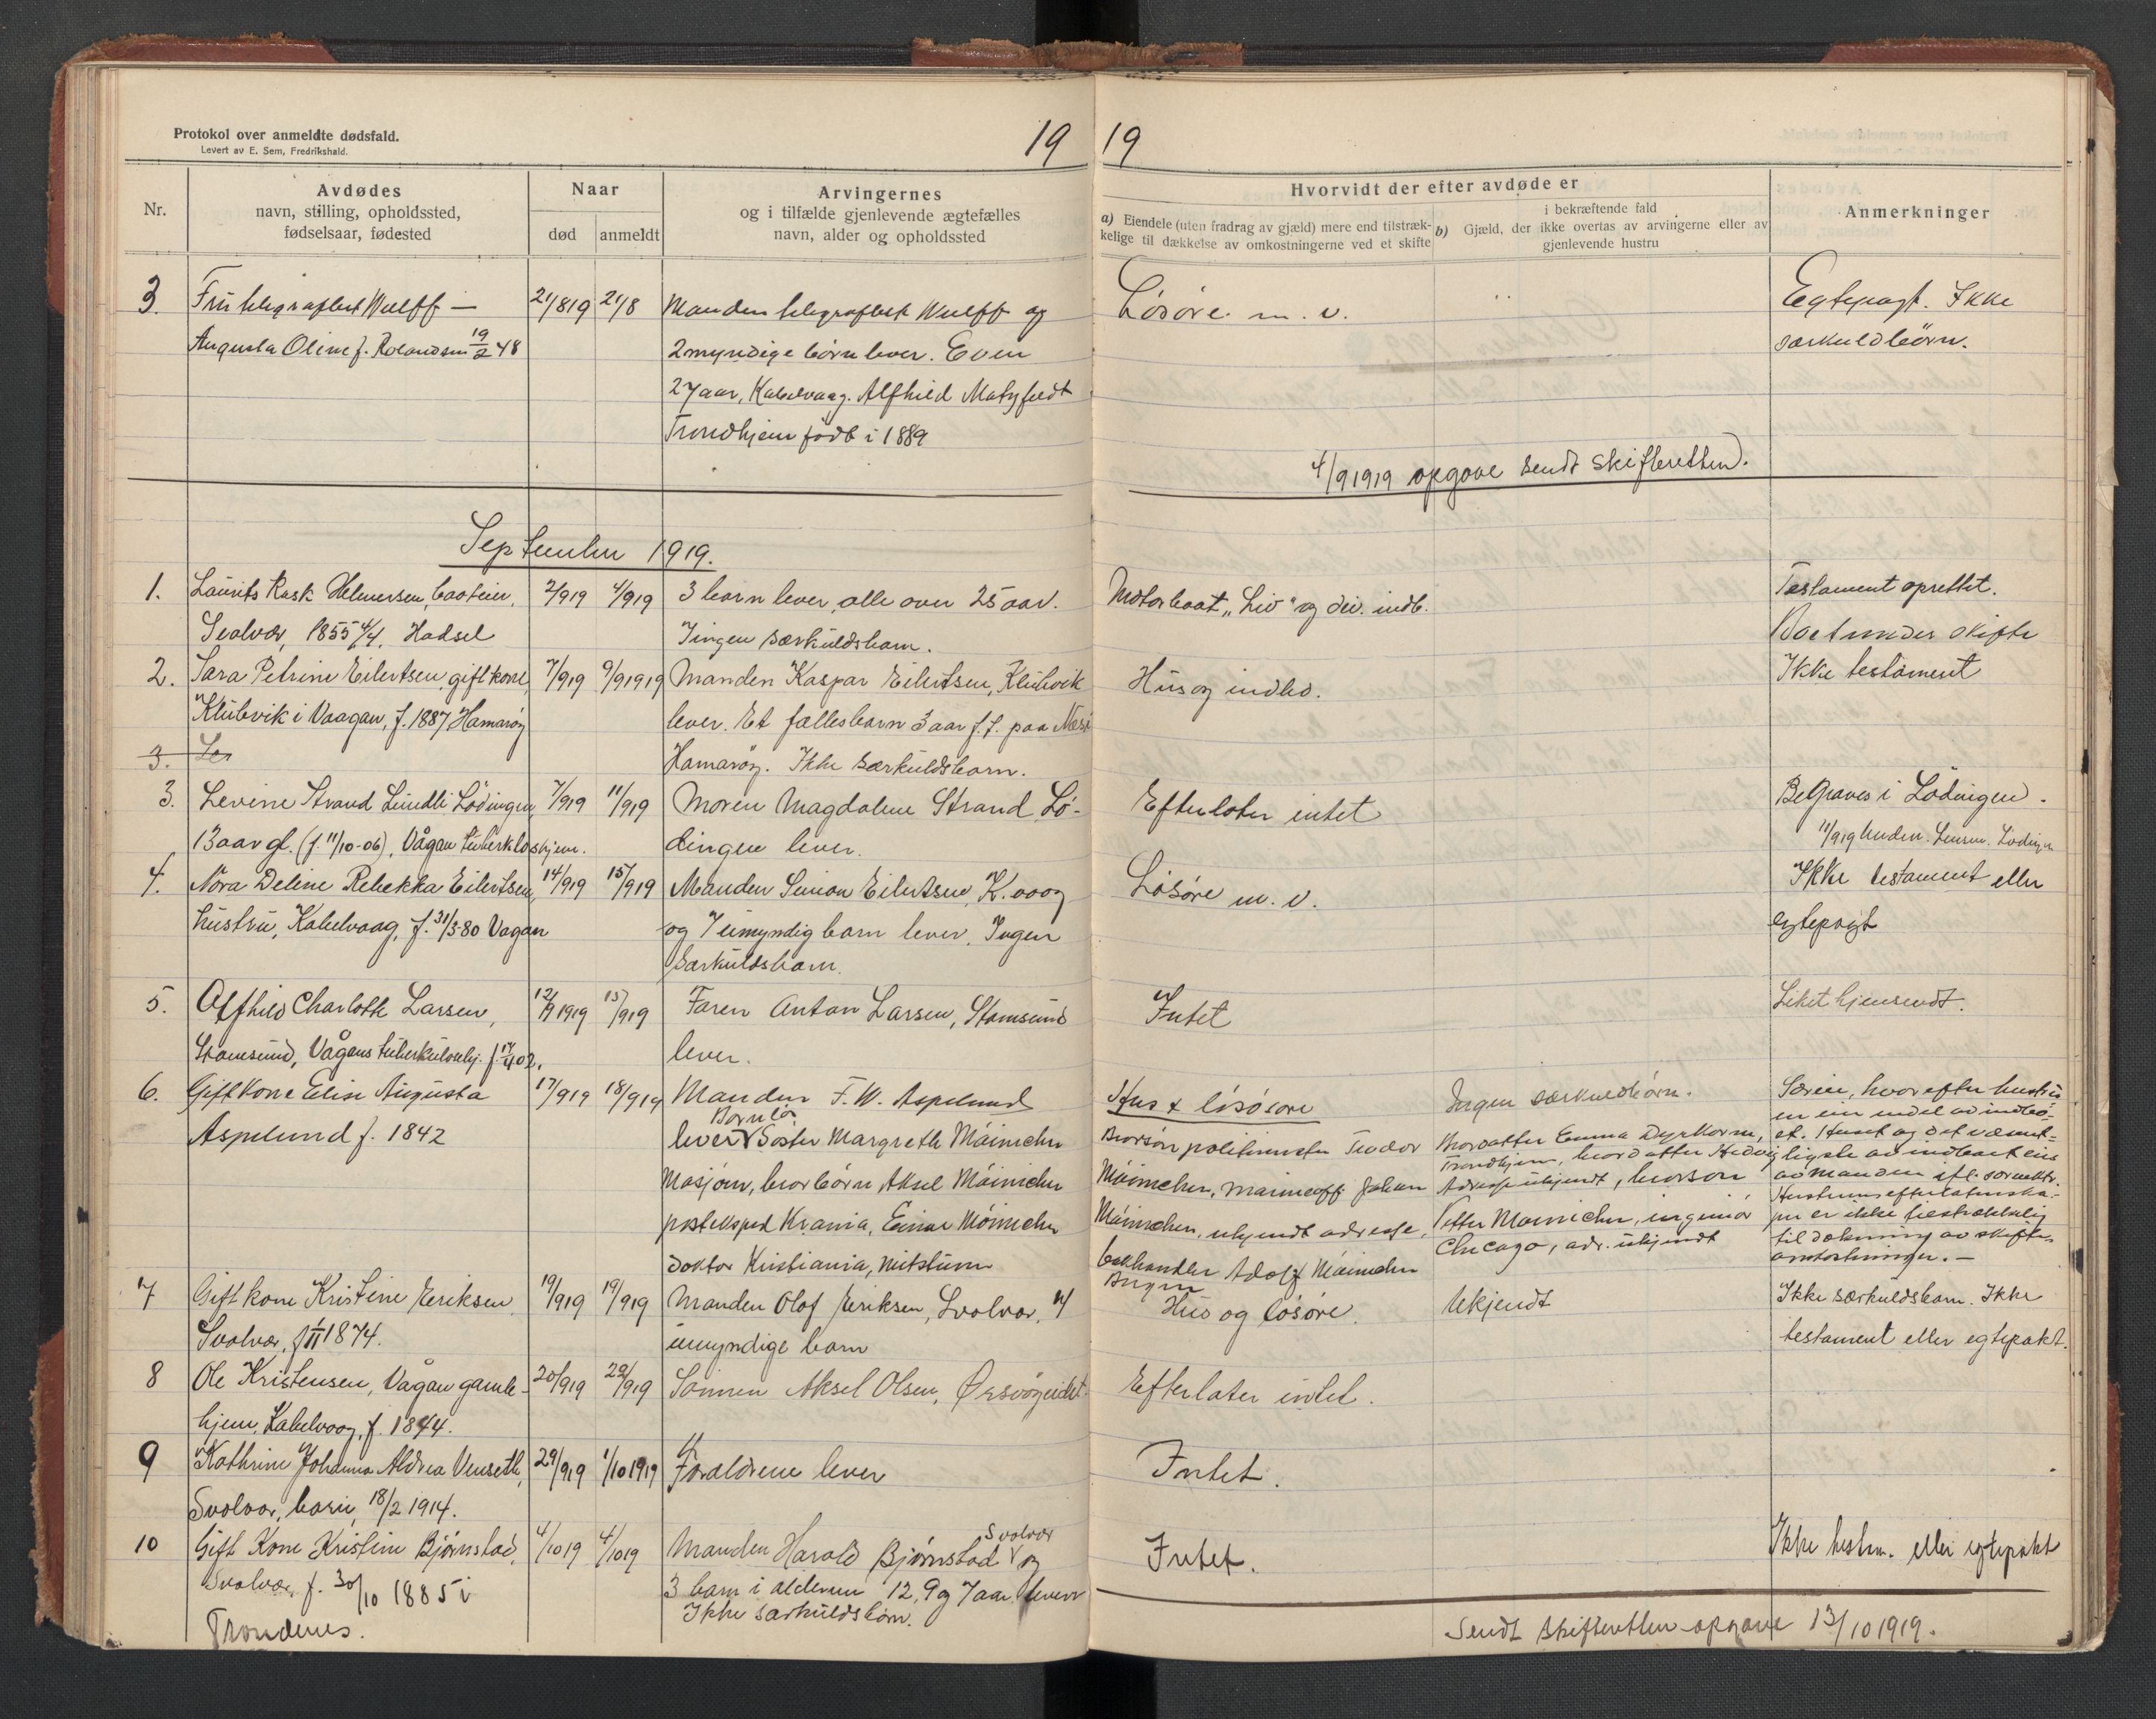 Protokol over anmeldte dødsfald.
Levert av E. Sem, Fredrikshald.
19
Nr.
Avdødes
navn, stilling, opholdssted,
fødselsaar, fødested
Naar
død
anmeldt
Arvingernes
og i tilfælde gjenlevende ægtefælles
navn, alder og opholdssted
3.
Fru telegrafbest Wulff —
Augusta Oline f. Rolandsen 19/2 48
21/8 19
21/8
Manden telegrafbest Wulff og
2 myndige børn lever. Even
27 aar, Kabelvaag. Alfhild
Trondhjem født i 1889
September 1919.
1.
Laurits Rask Helmersen, baateier,
Svolvær, 1855 4/4, Hadsel
2/9 19
4/9 19
3 barn lever, alle over 25 aar.
Ingen særkuldsbarn.
2.
Sara Petrine Eilertsen, gift kone,
Klubvik i Vaagan, f. 1887 Hamarøy
7/9 19
9/9 1919
Manden Kaspar Eilertsen, Klubvik
lever. Et fællesbarn 3 aar f. t. paa Nesø
3. Le
Hamarøy. Ikke særkuldsbarn.
3.
Levine Strand Lundli Lødingen
13 aar gl. (f 11/10-06), Vågan tuberkloshjem.
7/9 19
11/9 19
Moren Magdalene Strand Lø-
dingen lever.
4.
Nora Deline Rebekka Eilertsen,
hustru, Kabelvaag, f. 31/3-80 Vagan
14/9 19
15/9 19
Manden Simon Eilertsen, K.vaag
og 7 umyndig barn lever. Ingen
særkuldsbarn.
5.
Alfhild Charlotte Larsen,
Stamsund, Vågans tuberkulosehj. f. 17/4 02.
12/9 1919
15/9 19
Faren Anton Larsen, Stamsund
lever.
6.
Gift kone Elise Augusta
Aspelund f. 1842
17/9 19
18/9 19
Manden F. W. Aspelund
lever Søster Margrethe Møinichen
Mosjøen, brorbørn, Aksel Møinichen
posteksped Krania, Einar Møinichen
doktor Kristiania,
7
Gift kone Kristine Eriksen
Svolvær, f 1/11 1874.
19/9 19
19/9 19
Manden Olof Eriksen, Svolvær, 4
umyndige barn
8
Ole Kristensen, Vågan gamle-
hjem, Kabelvaag, f. 1844.
20/9 19
22/9 19
Sønnen Aksel Olsen, Ørsvågvidet
9
Kathrine Johanna Aldrea Venseth,
Svolvær, barn, 18/2 1914.
29/9 19
1/10 1919
Forældrene lever
10
Gift kone Kristine Bjørnstad,
Svolvær f. 30/10 1885 i
Trondenes.
4/10 19
4/10 19
Svolvær
Manden Harald Bjørnstad og
3 barn i alderen 12, 9 og 7 aar. lever
Ikke særkuldsbørn.
19
Hvorvidt der efter avdøde er
a) Eiendele (uten fradrag av gjæld) mere end tilstræk-
kelige til dækkelse av omkostningerne ved et skifte
i bekræftende fald
b) Gjæld, der ikke overtas av arvingerne eller av
gjenlevende hustru
Anmerkninger
Løsøre m. v.
"
Egtepagt. Ikke
særkuldbørn.
4/9 1919 opgave sendt skifteretten.
Motorbaat „Liv" og div. indb.
Testament oprettet.
Boet under skifte
Hus og indbo.
Ikke testament
Efterlater intet
Begraves i Lødingen.
11/9 19 Lensm. Lødingen
Løsøre m. v.
Ikke testament eller
egtepagt
Intet
Liket hjemsendt.
Hus & løsøre
Brorsøn politimester Teodor
Møinichen, Johan
Møinichen, ukjendt adresse,
bokhandler Adolf Møinichen
Bergen
Ingen særkuldbørn.
Brordatter Emma Dyrkorn,
Trondhjem, brordatter Hedvig
Adresse ukjendt, brorson
Petter Moinichen, ingeniør
Chicago, adr. ukjendt
Særeie, hvorefter hustru
en eier endel av indbo-
et. Huset og det væsent-
ligste av indboet eies
av manden ifl. særektr.
Hustruens efterlatenska-
per er ikke tilstrækkelig
til dækning av skifte-
omkostninger. —
Hus og løsøre.
Ukjendt
Ikke særkuldsbarn. Ikke
testament eller egtepakt.
Efterlater intet.
Intet.
Intet.
Ikke testm. eller egtepakt
Sendt skifteretten opgave 13/10 1919.